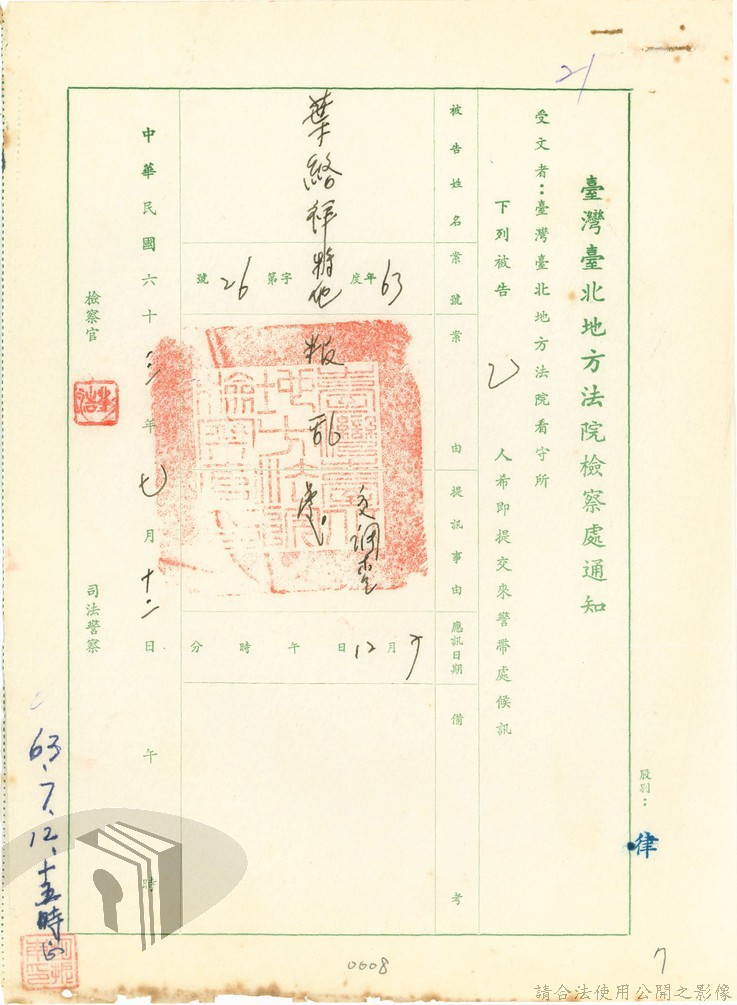 21
股別：
律
臺灣臺北地方法院檢察處通知
受文者：臺灣臺北地方法院看守所
下列被告 乙 人希即提交來警帶處候訊
被告姓名
案號
案由
提訊事由
應訊日期
備考
63年度
字第26號
葉
祥
叛乱
交調查
7月12日 午 時 分
中華民國六十三年七月十二日 午 時
檢察官
司法警察
63.7.12.十五時
0608
7
請合法使用公開之影像